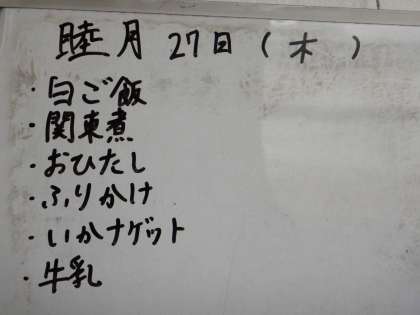 睦月 27日 (木)
・白ご飯
・関東煮
・おひたし
・ふりかけ
・いかナゲット
・牛乳